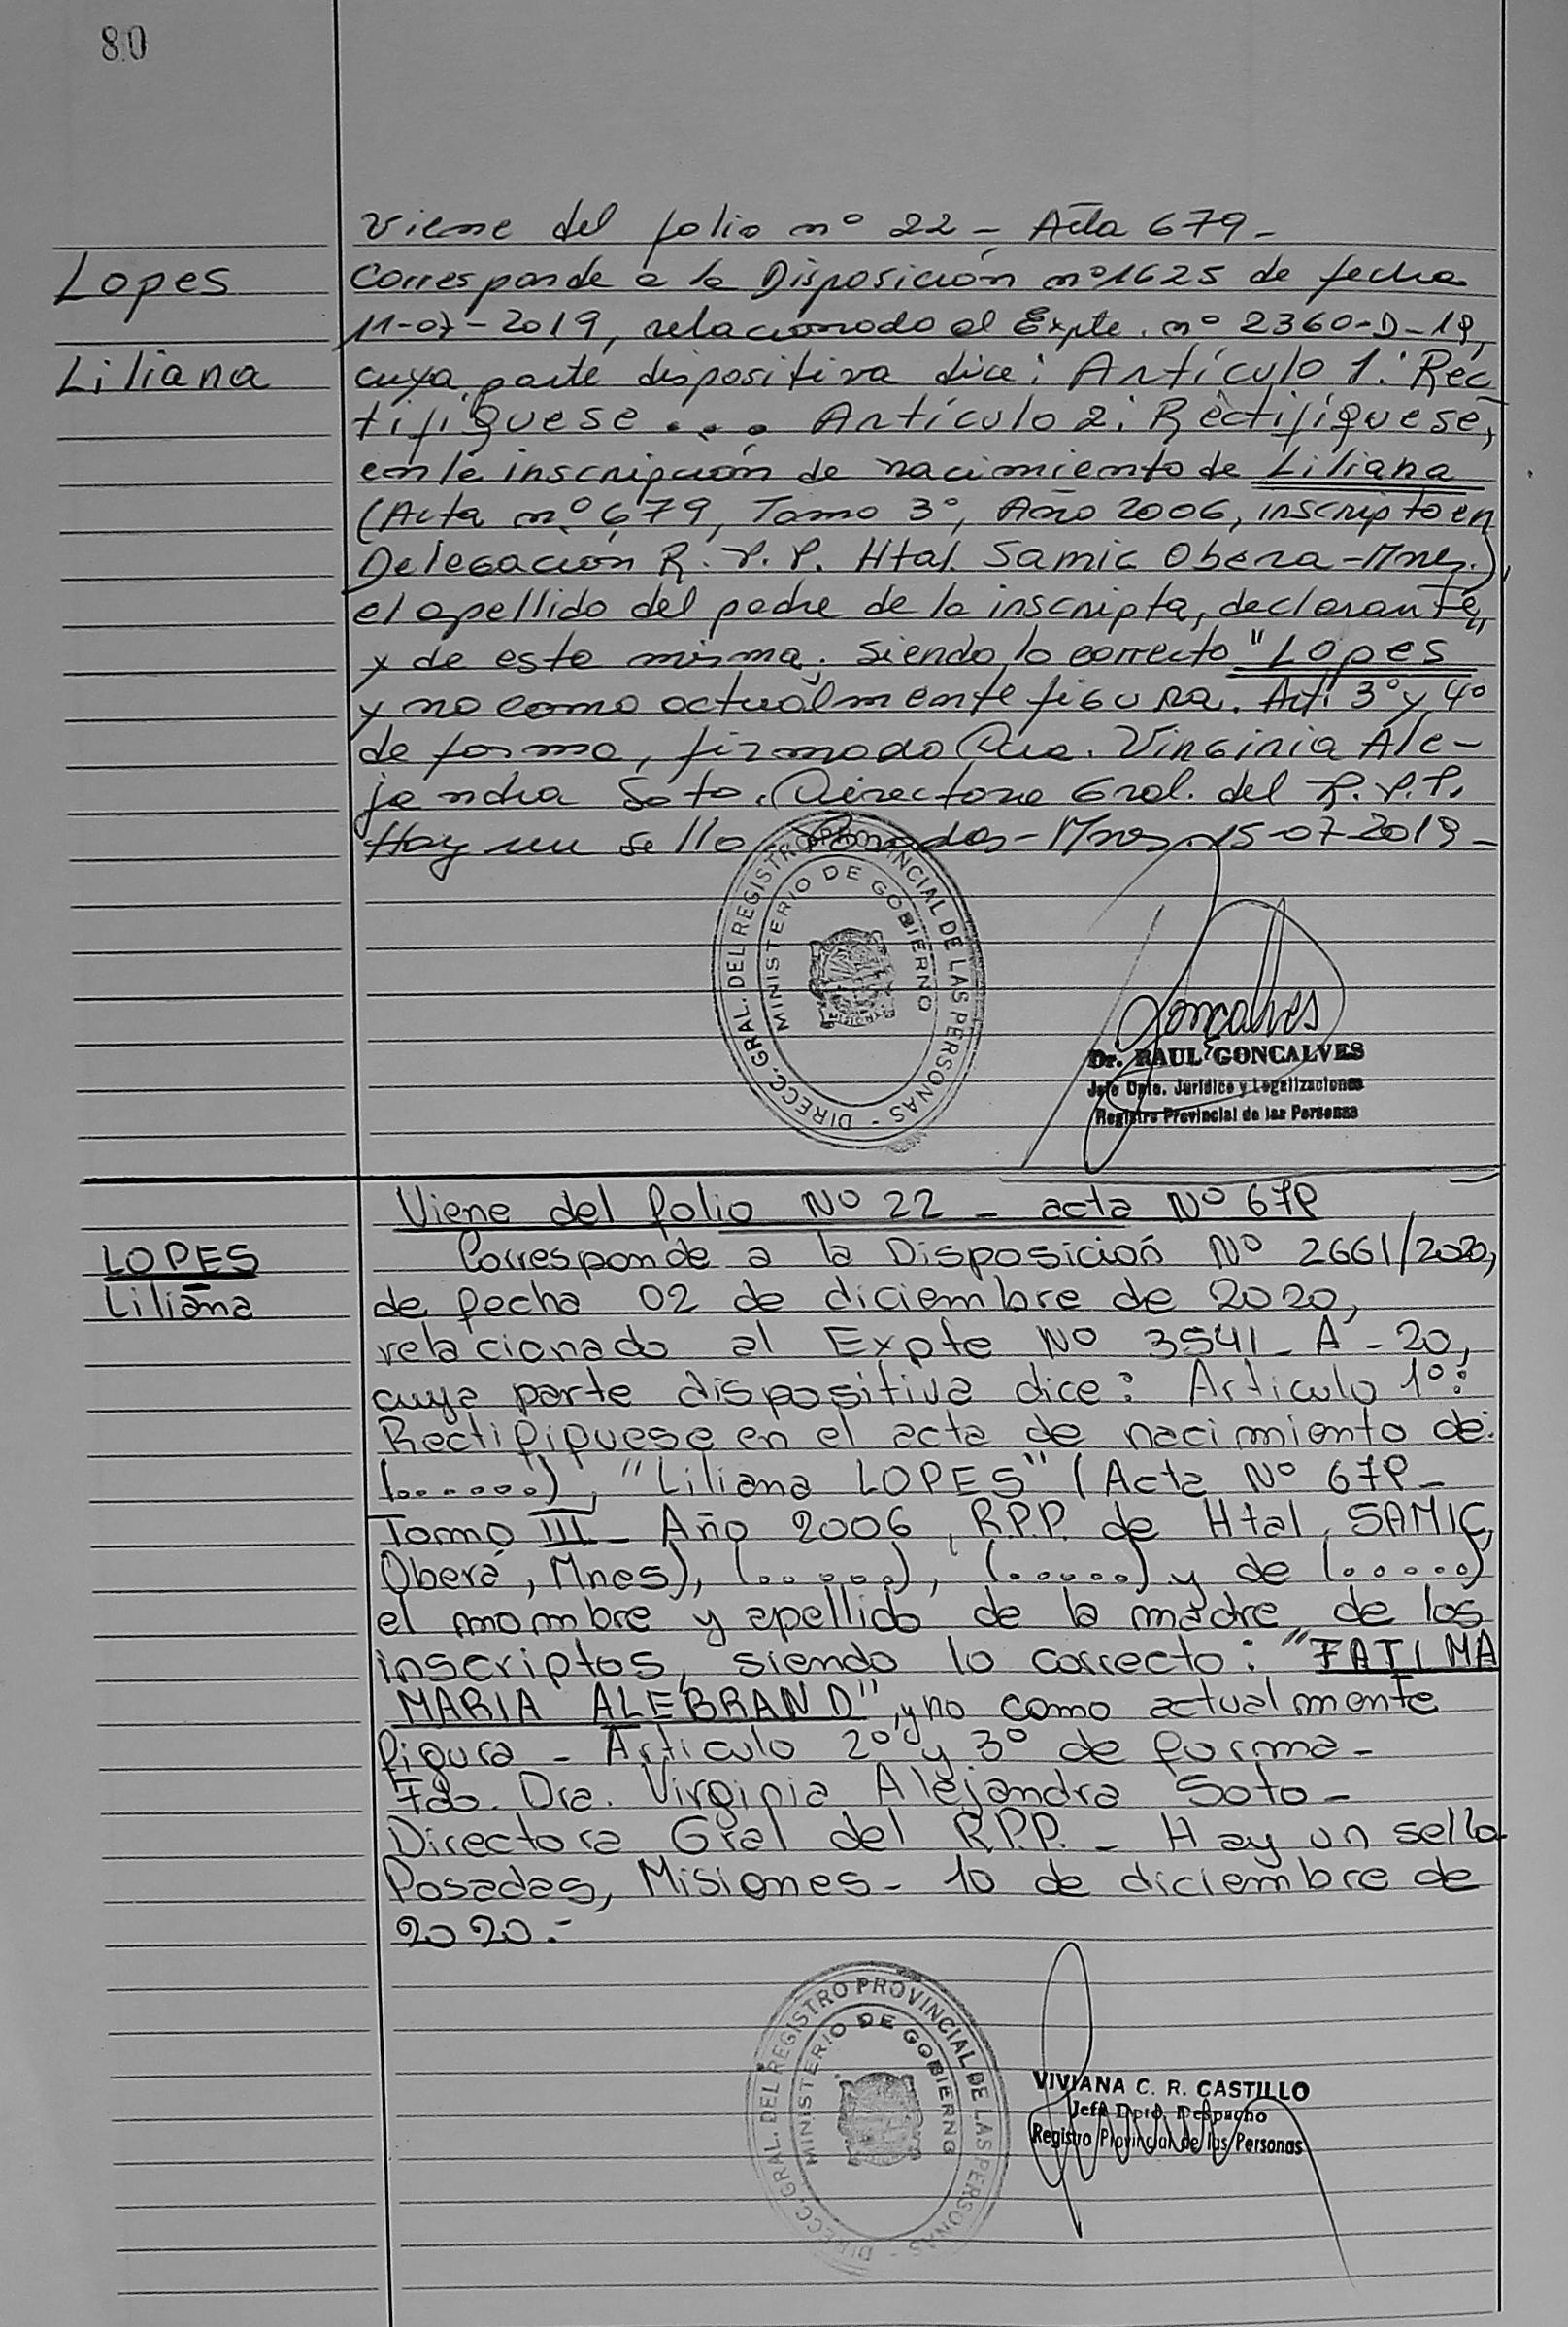 80
Viene del folio nº 22 - Acta 679-
Lopes
Corresponde a la Disposición nº1625 de fecha
11-07-2019, relacionado al Expte. nº 2360-D-19,
Liliana
cuya parte dispositiva dice: Artículo 1: Rec
tifíquese... Artículo 2: Rectifíquese,
en la inscripción de nacimiento de Liliana
(Acta nº 679, Tomo 3º, Año 2006, inscripto en
Delegación R.P.P. Htal. Samic Obera-Mnes.),
el apellido del padre de la inscripta, declarante,
y de esta misma, siendo lo correcto "Lopes
y no como actualmente figura. Art. 3º y 4º
de forma, firmado Dra. Virginia Ale-
jandra Soto. Directora Gral. del R.P.P.
Hay un sello Posadas-Mnes, 15-07-2019-
DIRECC. GRAL. DEL REGISTRO PROVINCIAL DE LAS PERSONAS -
MINISTERIO DE GOBIERNO
MISIONES
Goncalves
Dr. RAUL GONCALVES
Jefe Dpto. Jurídico y Legalizaciones
Registro Provincial de las Personas
Viene del folio Nº 22 - acta Nº 679
LOPES
Corresponde a la Disposición Nº 2661/2020,
Liliana
de fecha 02 de diciembre de 2020,
relacionado al Expte Nº 3541-A-20,
cuya parte dispositiva dice: Articulo 1º:
Rectifiquese en el acta de nacimiento de:
(......), "Liliana LOPES" (Acta Nº 679-
Tomo III - Año 2006, R.P.P. de Htal. SAMIC,
Oberá, Mnes), (......), (......) y de (.....)
el nombre y apellido de la madre de los
inscriptos, siendo lo correcto: "FATIMA
MARIA ALEBRAND", y no como actualmente
figura - Articulo 2º y 3º de forma-
Fdo. Dra. Virginia Alejandra Soto-
Directora Gral del R.P.P. - Hay un sello
Posadas, Misiones - 10 de diciembre de
2020.-
DIRECC. GRAL. DEL REGISTRO PROVINCIAL DE LAS PERSONAS -
MINISTERIO DE GOBIERNO
VIVIANA C. R. CASTILLO
Jefa Dpto. Despacho
Registro Provincial de las Personas